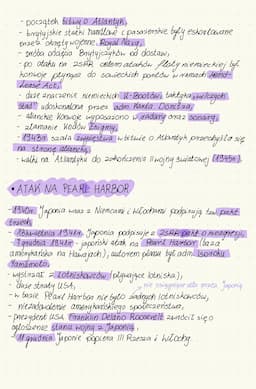 - początek bitwy o Atlantyk,
- brytyjskie statki handlowe i pasażerskie były eskortowane
przez okręty wojenne Royal Navy,
- próba odcięcia Brytyjczyków od dostaw,
- po ataku na ZSRR celem ataków floty niemieckiej był
konwoje płynące do sowieckich portów w ramach Lend-
Lease Act,
- duże znaczenie niemieckich U-Bootów, taktyka „wilczych
stad” udoskonalona przez adm. Karla Dönitza,
- alianckie konwoje wyposażono w radary oraz sonary,
- złamanie kodów Enigmy,
- 1943r. szala zwycięstwa w bitwie o Atlantyk przechyliła się
na stronę aliantów,
- walki na Atlantyku do zakończenia II wojny światowej (1945r.).
• ATAK NA PEARL HARBOR
- 1940r. Japonia wraz z Niemcami i Włochami podpisują tzw. pakt
trzech,
- 13 kwietnia 1941r. Japonia podpisuje z ZSRR pakt o nieagresji,
- 7 grudnia 1941r. - japoński atak na Pearl Harbor (baza
amerykańska na Hawajach), autorem planu był adm. Isoroku
Yamamoto,
- wystrzał z lotniskowców (pływające lotniska),
- duże straty USA,
nie osiągnięto celu przez Japonię
- w bazie Pearl Harbor nie było żadnych lotniskowców,
- niezadowolenie amerykańskiego społeczeństwa,
- prezydent USA Franklin Delano Roosevelt zwrócił się o
ogłoszenie stanu wojny z Japonią,
- 11 grudnia Japonię poparła III Rzesza i Włochy.